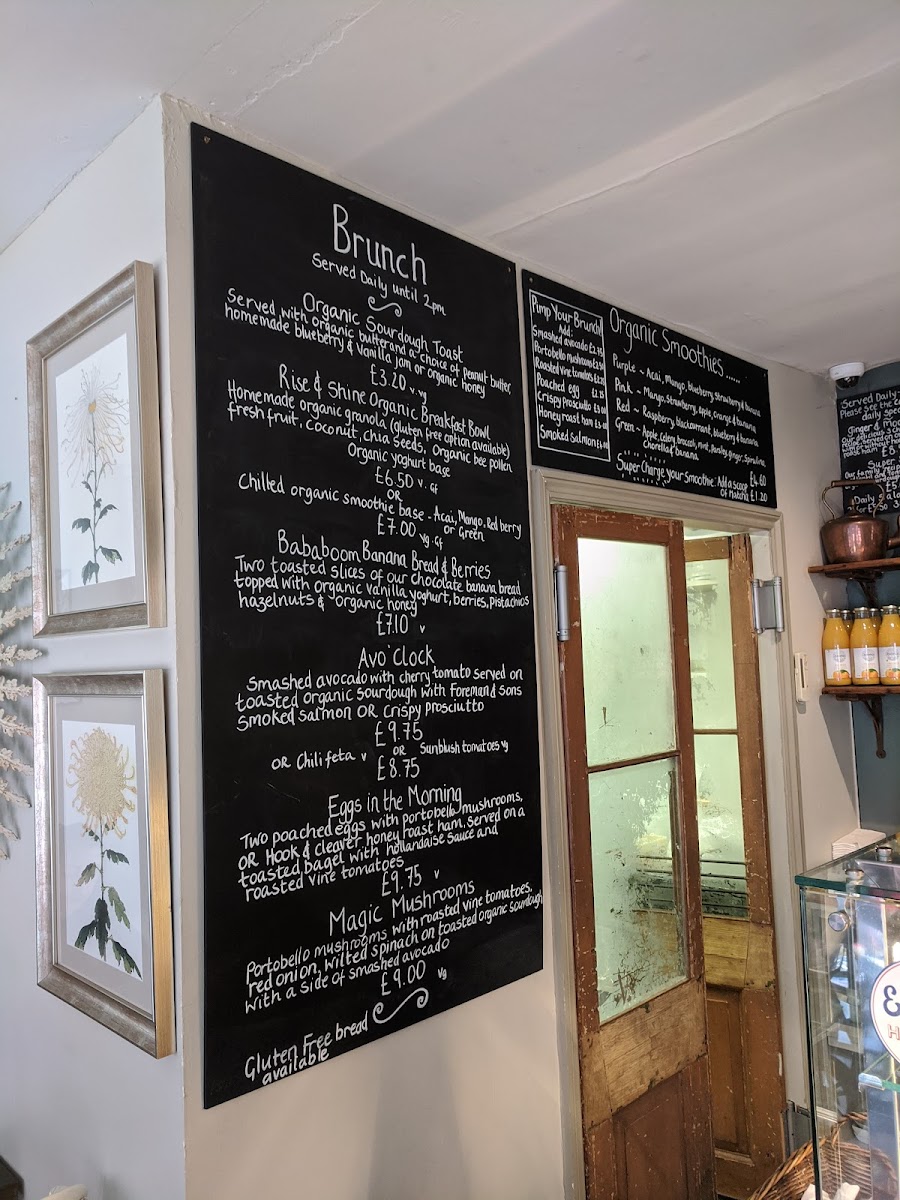 Brunch
Served Daily until 2pm
Organic Sourdough Toast
Served with organic butter and a choice of peanut butter,
homemade blueberry & vanilla jam or organic honey
£3.20 v. vg
Rise & Shine Organic Breakfast Bowl
Homemade organic granola (gluten free option available)
fresh fruit, coconut, chia seeds, Organic bee pollen
Organic yoghurt base
£6.50 v. gf
OR
Chilled organic smoothie base - Acai, Mango, Red berry
or Green
£7.00 vg. gf
Bababoom Banana Bread & Berries
Two toasted slices of our chocolate banana bread
topped with organic vanilla yoghurt, berries, pistachios
hazelnuts & organic honey
£7.10 v
Avo'clock
Smashed avocado with cherry tomato served on
toasted organic sourdough with Foreman & sons
smoked salmon OR crispy prosciutto
£9.75
OR Chili feta v OR Sunblush tomatoes vg
£8.75
Eggs in the Morning
Two poached eggs with portobello mushrooms,
OR Hook & cleaver honey roast ham, served on a
toasted bagel with hollandaise sauce and
roasted vine tomatoes
£9.75 v
Magic Mushrooms
Portobello mushrooms with roasted vine tomatoes,
red onion, wilted spinach on toasted organic sourdough
with a side of smashed avocado
£9.00 vg
Gluten Free bread
available
Pimp Your Brunch!
Add:
Smashed avocado £2.75
Portobello mushrooms
Roasted vine tomatoes
Poached egg
Crispy prosciutto
Honey roast ham
Smoked salmon
Organic Smoothies......
Purple ~ Acai, Mango, blueberry, strawberry & banana
Pink ~ Mango, strawberry, apple, orange & banana
Red ~ Raspberry, blackcurrant, blueberry & banana
Green ~ Apple, celery, broccoli, mint, parsley, ginger, spirulina,
Chorella & banana
£4.60
Super Charge your Smoothie: Add a Scoop
of Matcha £1.20
Served Daily
Please see the
daily
Ginger &
Super
&
H